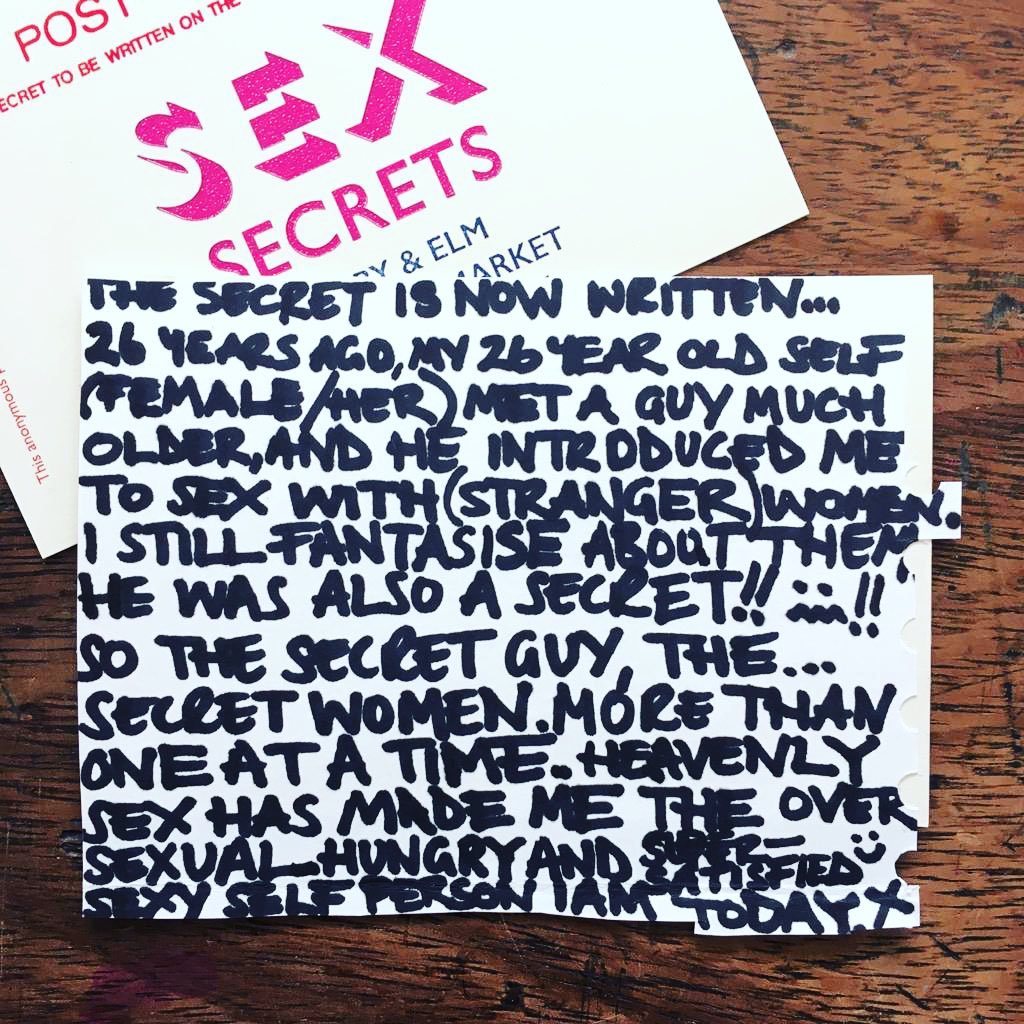 POST
ECRET TO BE WRITTEN ON THE
SEX
SECRETS
BY & ELM
MARKET
This anonymous
THE SECRET IS NOW WRITTEN...
26 YEARS AGO, MY 26 YEAR OLD SELF
(FEMALE/HER) MET A GUY MUCH
OLDER, AND HE INTRODUCED ME
TO SEX WITH (STRANGER) WOMEN.
I STILL FANTASISE ABOUT THEM.
HE WAS ALSO A SECRET!! !!
SO THE SECRET GUY, THE...
SECRET WOMEN. MORE THAN
ONE AT A TIME.. HEAVENLY
SEX HAS MADE ME THE OVER
SEXUAL HUNGRY AND SUPER-SATISFIED
SEXY SELF PERSON I AM TODAY. X